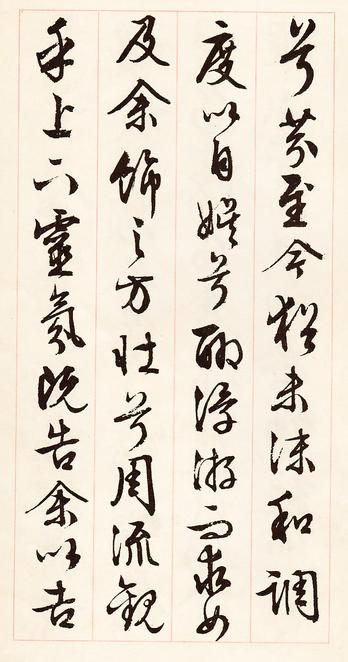 兮芬至今猶未沬和調
度以自娛兮聊浮游而求女
及余飾之方壯兮周流觀
乎上下靈氛既告余以吉